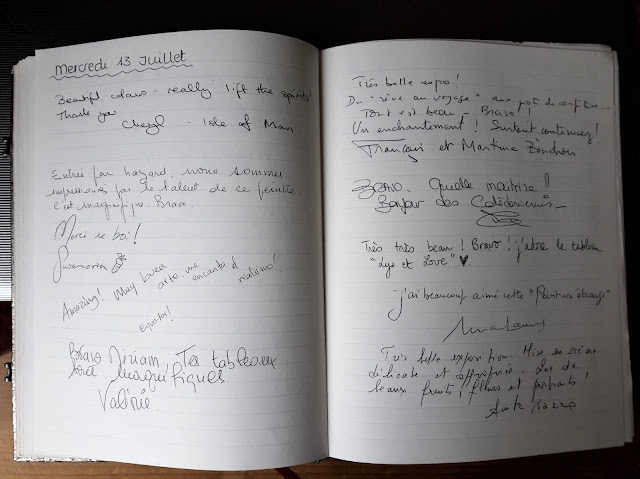 Mercredi 13 Juillet
Beautiful colours - really lift the spirits!
Thank you
Cheryl - Isle of Man
Entrés par hazard, nous sommes
impressionnés par le talent de ce peintre.
c'est magnifique. Bravo.
Merci
Amazing! Muy buen arte, me encanto el
Bravo Miriam, Tes tableaux
sont magnifiques.
Valérie.
Très belle expo!
Du "rêve au voyage" aux pots de confiture...
Tout est beau! Bravo!
Un enchantement! Surtout continuez!
François et Martine
BRAVO. Quelle maitrise!!
Bonjour des
Très très beau! Bravo! j'adore le tableau
"Lys et Love" ♥.
- j'ai beaucoup aimé cette "Peinture étrange"
Très belle exposition. Mise en scène
délicate et appropriée. Que de
beaux fruits, fleurs et portraits!
Anita